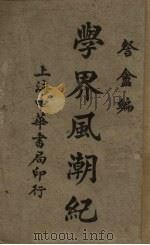 咎盦編
學界風潮紀
上海中華書局印行